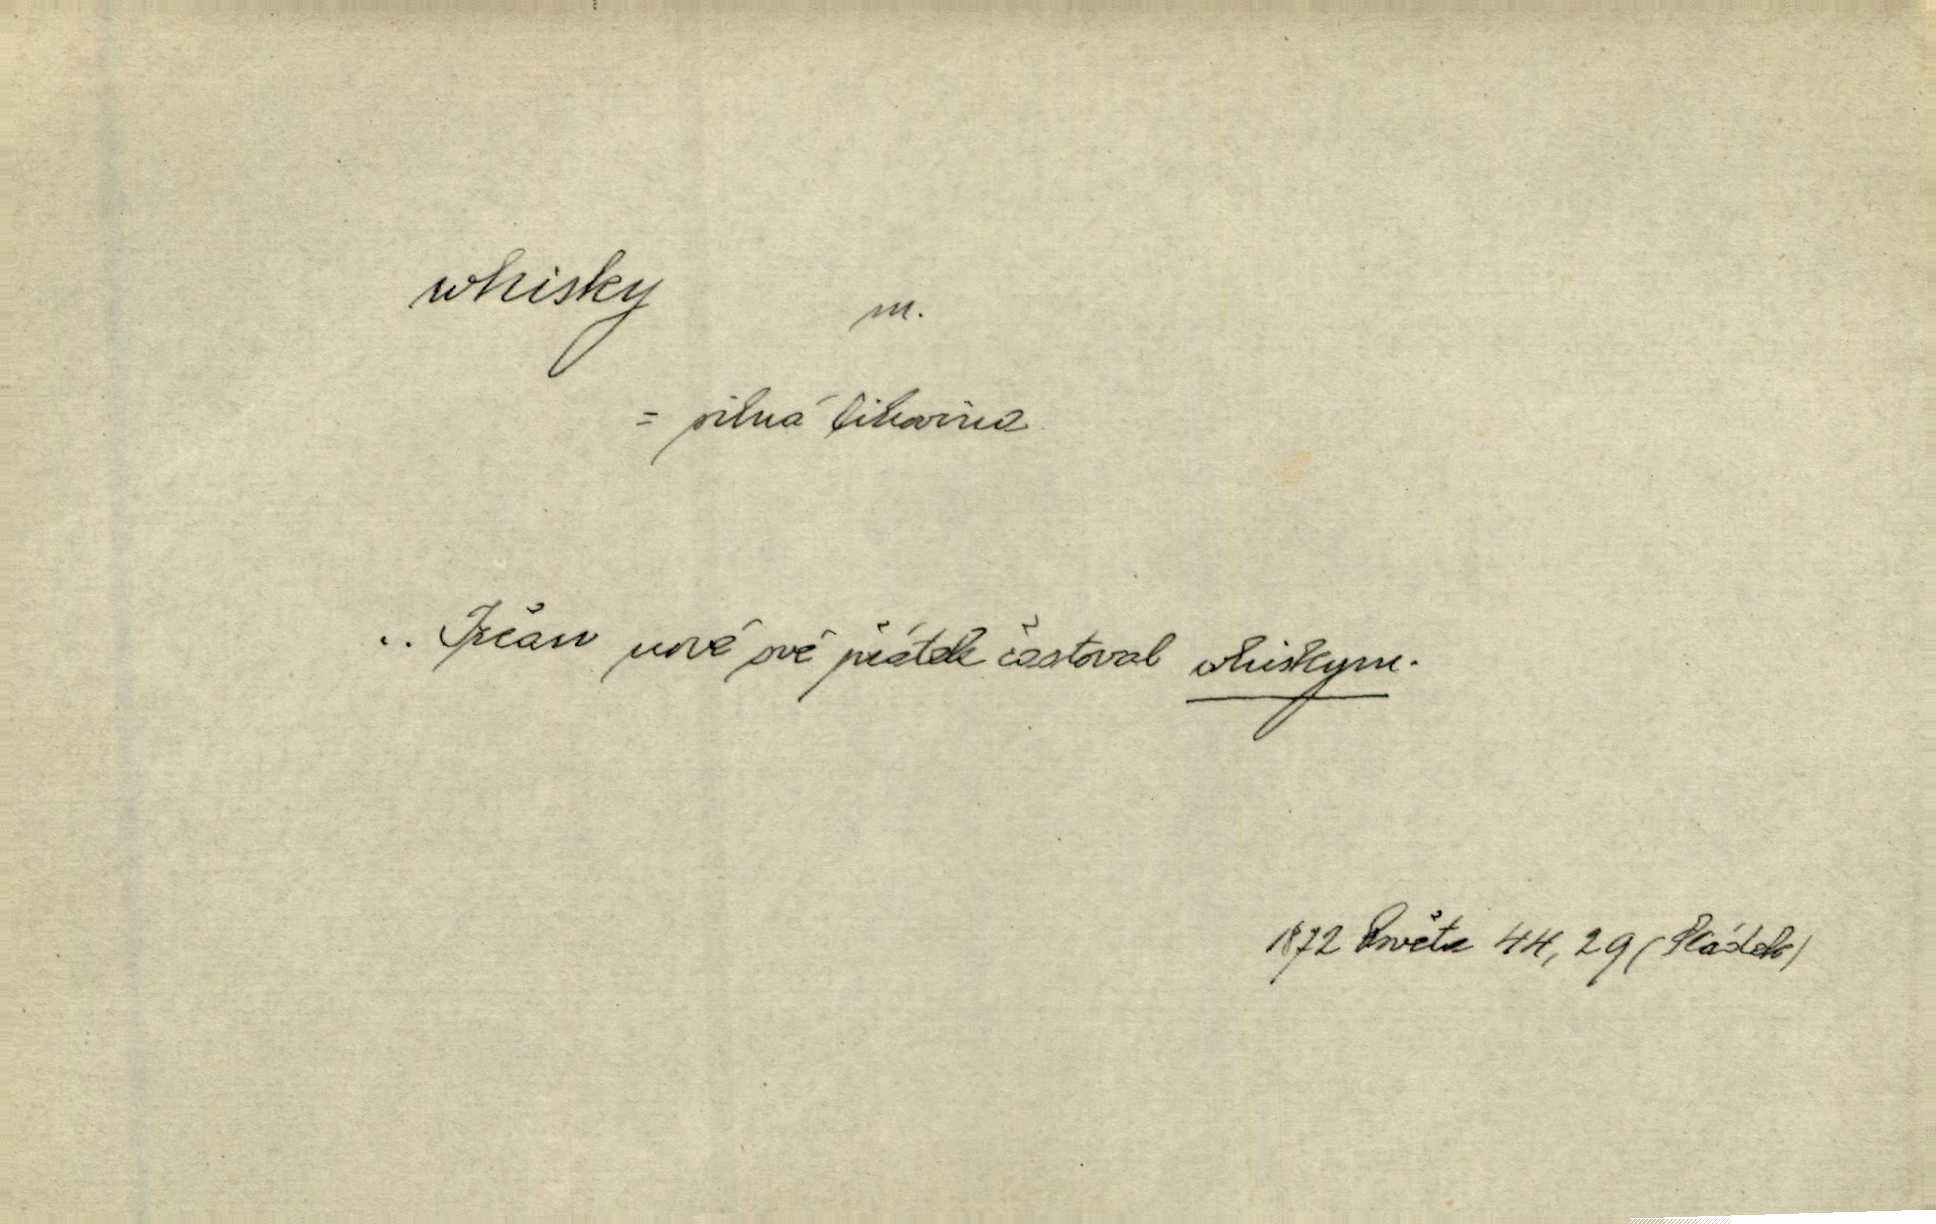 whisky m.
= silná lihovina
.. Irčan nové své přátele častoval whiskym.
1872 Květy 44, 29 (Sládek)